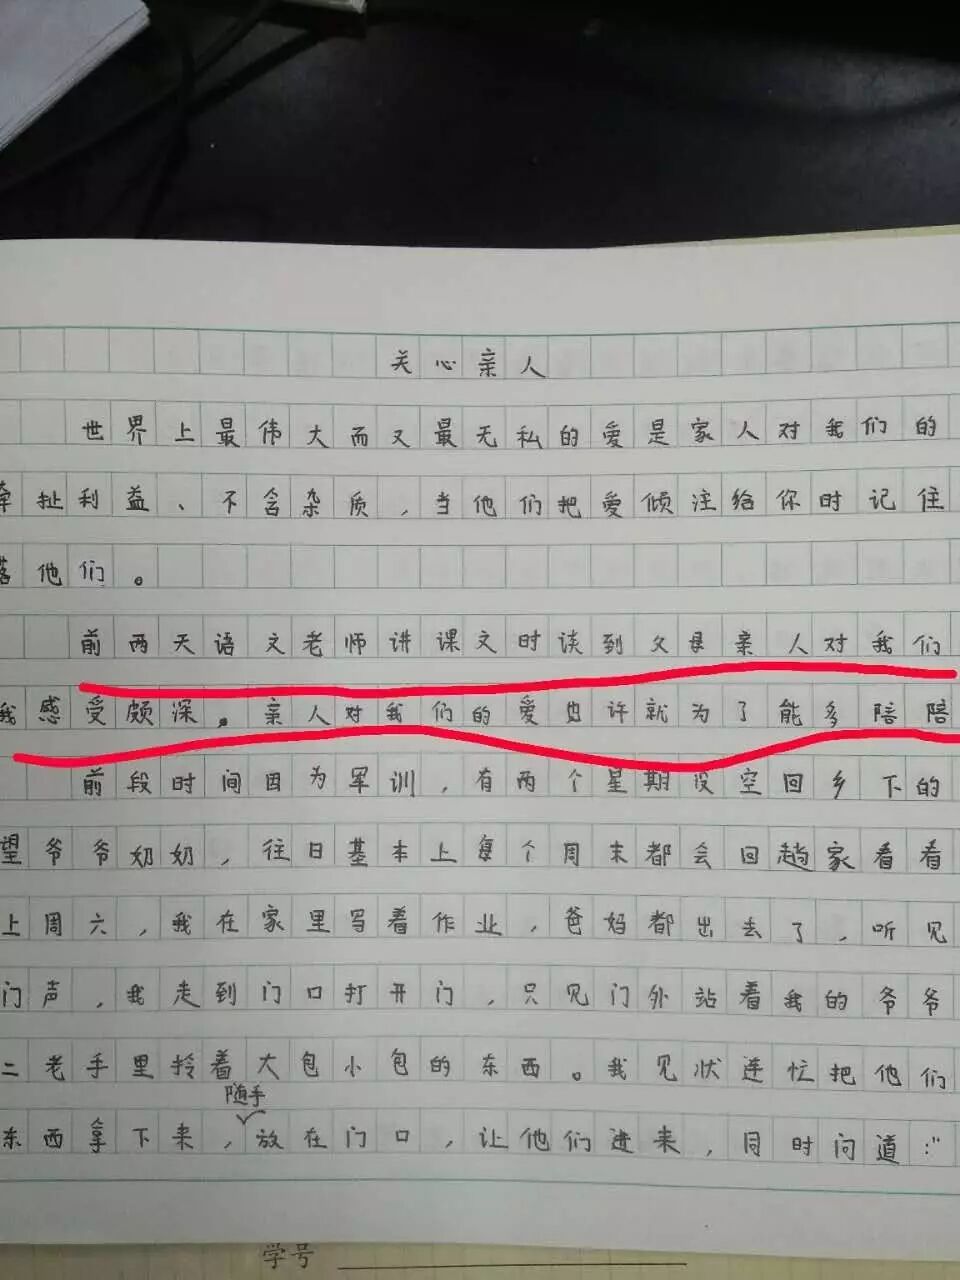 关心亲人
世界上最伟大而又最无私的爱是家人对我们的
牵扯利益、不含杂质，当他们把爱倾注给你时记住
落他们。
前两天语文老师讲课文时谈到父母亲人对我们
我感受颇深。亲人对我们的爱也许就为了能多陪陪
前段时间因为军训，有两个星期没空回乡下的
望爷爷奶奶，往日基本上每个周末都会回趟家看看
上周六，我在家里写着作业，爸妈都出去了，听见
门声，我走到门口打开门，只见门外站着我的爷爷
二老手里拎着大包小包的东西。我见状连忙把他们
随手
东西拿下来，放在门口，让他们进来，同时问道：“
学号